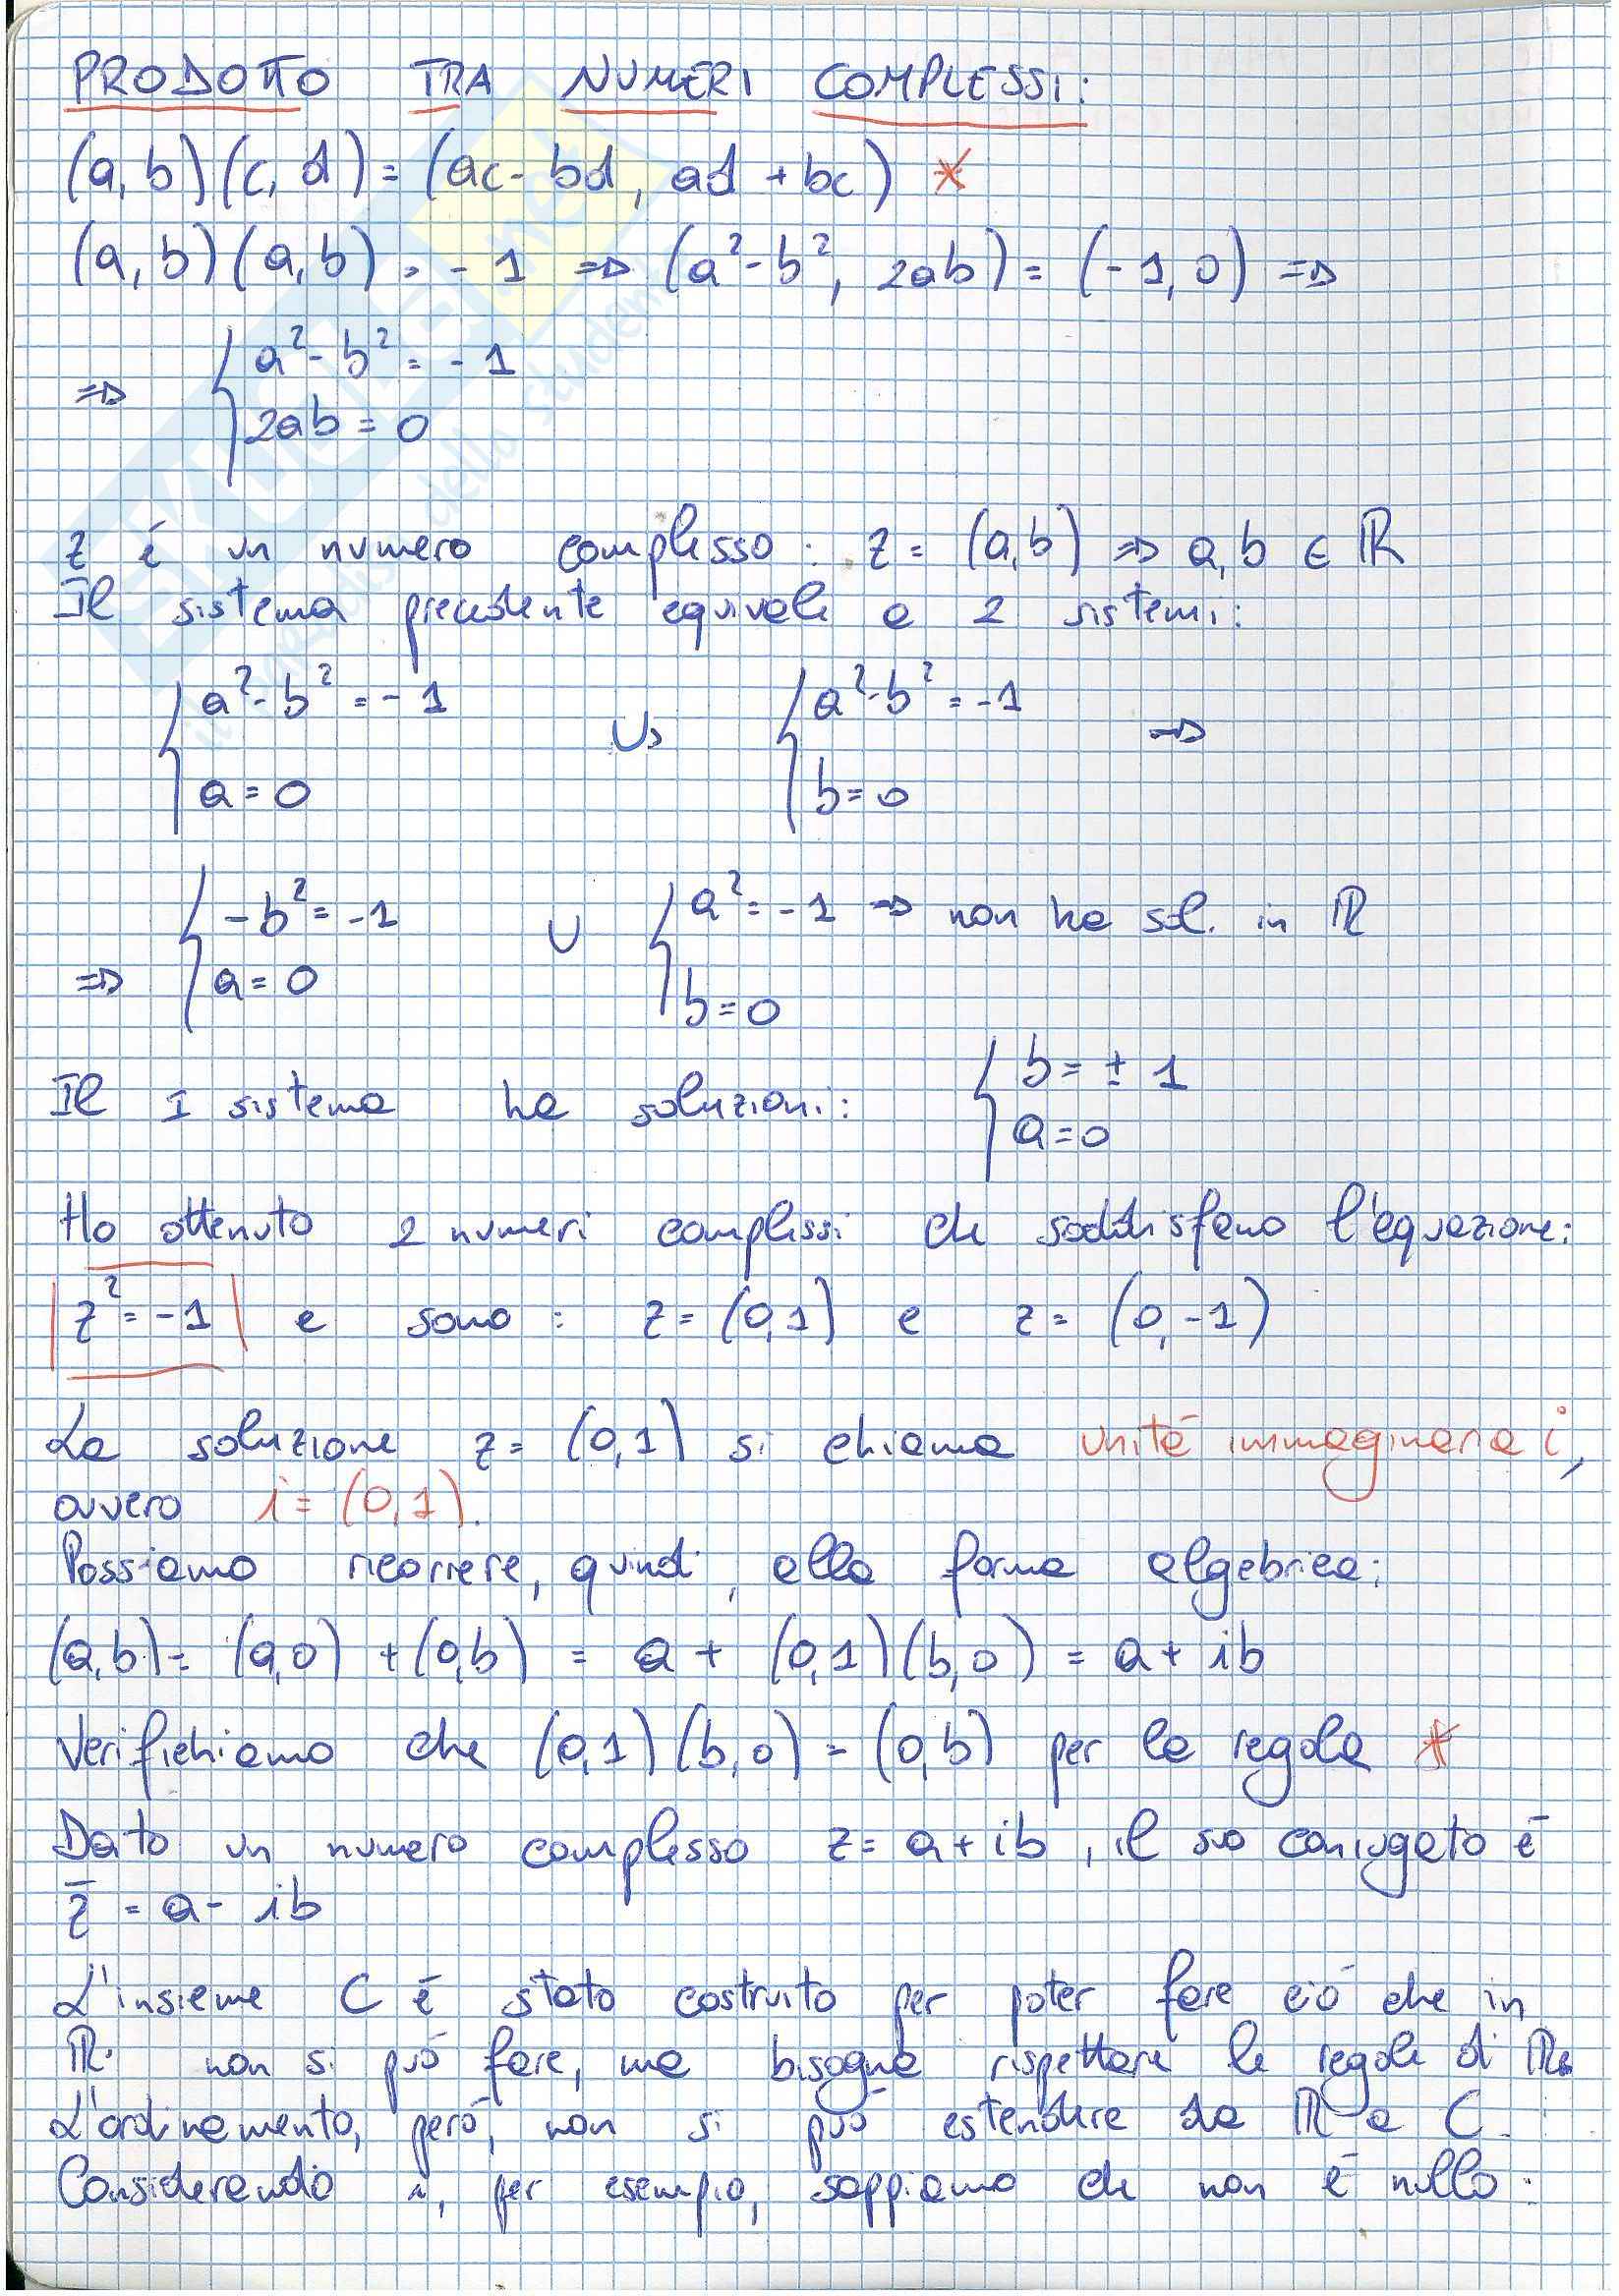 PRODOTTO TRA NUMERI COMPLESSI:
(a,b)(c,d) = (ac-bd, ad+bc) *
(a,b)(a,b) = -1 ⇒ (a²-b², 2ab) = (-1,0) ⇒
⇒ { a²-b² = -1
2ab = 0
z é un numero complesso: z = (a,b) ⇒ a,b ∈ ℝ
Il sistema precedente equivale a 2 sistemi:
{ a²-b² = -1 ∪ { a²-b² = -1 ⇒
a = 0 b = 0
⇒ { -b² = -1 ∪ { a² = -1 ⇒ non ha sol. in ℝ
a = 0 b = 0
Il 1 sistema ha soluzioni: { b = ± 1
a = 0
Ho ottenuto 2 numeri complessi che soddisfano l'equazione:
|z² = -1| e sono: z = (0,1) e z = (0,-1)
La soluzione z = (0,1) si chiama unitá immaginaria i,
ovvero i = (0,1).
Possiamo ricorrere, quindi, alla forma algebrica:
(a,b) = (a,0) + (0,b) = a + (0,1)(b,0) = a + ib
Verifichiamo che (0,1)(b,0) = (0,b) per la regola *
Dato un numero complesso z = a + ib, il suo coniugato é
z̄ = a - ib
L'insieme C é stato costruito per poter fare ció che in
ℝ non si puó fare, ma bisogna rispettare le regole di ℝ.
L'ordinamento, peró, non si puó estendere da ℝ a C.
Considerando i, per esempio, sappiamo che non é nullo: